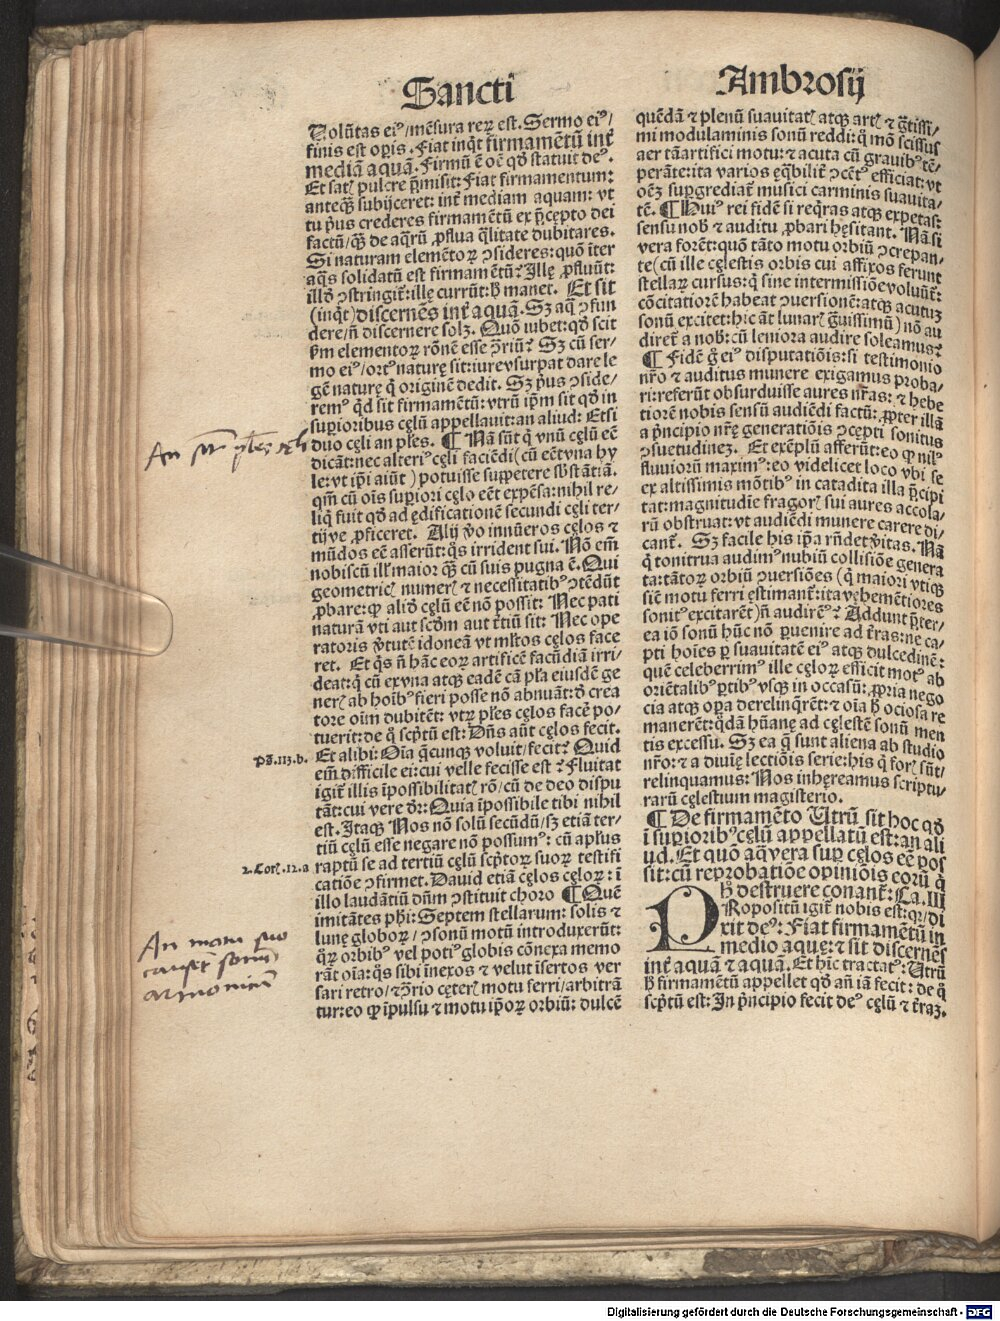 Sancti
Ambrosij
Volūtas eiꝰ/mēsura reꝝ est. Sermo eiꝰ/
finis est opis. Fiat inqͥt firmamētū int̄
mediā aquā. Firmū ē oē qd̄ statuit deꝰ.
Et satꝭ pulcre p̄misit: Fiat firmamentum:
anteqꝫ subijceret: int̄ mediam aquam: vt
tu pͥus crederes firmamētū ex p̄cepto dei
factū/qꝫ de aqͣrū ꝓflua qͣlitate dubitares.
Si naturam elemētoꝝ ꝯsideres: quō iter
aqͣs solidatū est firmamētū? Ille ꝓfluūt:
illd̄ ꝯstringit̄: ille currūt: hͦ manet. Et sit
(inqͥt) discernēs int̄ aquā. Sꝫ aqͣ ꝯfun
dere/ñ discernere solꝫ. Quō iubet: qd̄ scit
hͫ elementoꝝ rōnē esse ꝯ̄riū? Sꝫ cū ser⸗
mo eiꝰ/ortꝰ naturę sit: iure vsurpat dare le
gē naturę qͥ originē dedit. Sꝫ pͥus ꝯside⸗
remꝰ qͥd sit firmamētū: vtrū ip̄m sit qd̄ in
supioribus cęlū appellauit: an aliud: Etsi
duo cęli an ples. ¶ Nā sūt qͥ vnū cęlū eē
dicāt: nec alteriꝰ cęli faciēdi (cū eēt vna hy
le: vt ip̄i aiūt) potuisse suppetere sb̄stātiā.
qm̄ cū oīs supiori cęlo eēt expēsa: nihil re⸗
liqͥ fuit qd̄ ad ędificationē secundi cęli ter⸗
tijve ꝓficeret. Alij v̄o innūeros cęlos ⁊
mūdos eē asserūt: qͦs irrident sui. Nō em̄
nobiscū illꝭ maior qꝫ cū suis pugna ē. Qui
geometricꝭ numerꝭ ⁊ necessitatibꝰ ꝯtēdūt
ꝓbare: ꝙ aliō cęlū eē nō possit: Nec pati
naturā vti aut scd̄m aut t̄tiū sit: Nec ope
ratoris v̄tutē idoneā vt mltos cęlos face
ret. Et qͥs ñ hāc eoꝝ artificē facūdiā irri⸗
deat: qͥ cū ex vna atqꝫ eadē cā pla eiusdē ge
nerꝭ ab hoībꝰ fieri posse nō abnuāt: d̄ crea
tore oīm dubitēt: vtꝝ ples cęlos facē po⸗
tuerit: de qͦ scptū est: Dn̄s aūt cęlos fecit.
Et alibi: Oīa qͣcunqꝫ voluit/fecit? Quid
em̄ difficile ei: cui velle fecisse est? Fluitat
igit̄ illis īpossibilitatꝭ rō/cū de deo dispu
tāt: cui vere dr̄: Quia īpossibile tibi nihil
est. Itaqꝫ Nos nō solū secūdū/sꝫ etiā ter⸗
tiū cęlū esse negare nō possumꝰ: cū aplus
raptū se ad tertiū cęlū scptoꝝ suoꝝ testifi
catiōe ꝯfirmet. Dauid etiā cęlos cęloꝝ: ī
illo laudātiū dn̄m ꝯstituit choro ¶ Quē
imitātes phi: Septem stellarum: solis ⁊
lunę globoꝝ/ꝯsonū motū introduxerūt:
qͥbꝝ orbibꝰ vel potiꝰ globis cōnexa memo
rāt oīa: qͥs sibi īnexos ⁊ velut īsertos ver
sari retro/⁊ ꝯ̄rio ceterꝭ motu ferri/arbitrā
tur: eo ꝙ īpulsu ⁊ motu ip̄oꝝ orbiū: dulcē
pͥs̄.113.b.
2.Corꝭ.12.a
An motu suo
armonicū
quēdā ⁊ plenū suauitatꝭ atqꝫ artꝭ ⁊ gͣtissi/
mi modulaminis sonū reddi: qͥ mō scissus
aer tā artifici motu: ⁊ acuta cū grauibꝰ tē⸗
perāte: ita varios eqͣbilit̄ ꝯcētꝰ efficiat: vt
oēꝫ supgrediat̄ musici carminis suauita⸗
tē. ¶ Huiꝰ rei fidē si reqͥras atqꝫ expetas:
sensu nob̄ ⁊ auditu ꝓbari hęsitant. Nā si
vera forēt: quō tāto motu orbiū ꝯcrepan⸗
te (cū ille cęlestis orbis cui affixos ferunt
stellaꝝ cursus: qͥ sine intermissiōe voluūt̄:
cōcitatiorē habeat ꝯuersionē: atqꝫ acutuꝫ
sonū excitet: hic āt lunarꝭ gͣuissimū) nō au
diret̄ a nob̄: cū leniora audire soleamus?
¶ Fidē gͦ eiꝰ disputatiōis: si testimonio
nr̄o ⁊ auditus munere exigamus proba⸗
ri: referūt obsurduisse aures nr̄as: ⁊ hebe
tiorē nobis sensū audiēdi factū: ꝓpter illā
a pͥncipio nr̄ę generatiōis ꝯcepti sonitus
ꝯsuetudinēꝫ. Et exēplū afferūt: eo ꝙ nilꝰ
fluuiorū maximꝰ: eo videlicet loco vbi se
ex altissimis mōtibꝰ in catadita illa pͥcipi
tat: magnitudīe fragorꝭ sui aures accola⸗
rū obstruat: vt audiēdi munere carere di⸗
cant̄. Sꝫ facile his ip̄a rn̄det v̄itas. Nā
qͥ tonitrua audimꝰ nubiū collisiōe genera
ta: tātoꝝ orbiū ꝯuersiōes (qͥ maiori vtiqꝫ
siē motu ferri ęstimant̄: ita vehemētiores
sonitꝰ excitarēt) ñ audirēꝰ? Addunt pͣter⸗
ea iō sonū hūc nō puenire ad t̄ras: ne ca⸗
pti hoīes p suauitatē eiꝰ atqꝫ dulcedinē:
quē celeberrimꝰ ille cęloꝝ efficit motꝰ ab
oriētalibꝰ ptibꝰ vsqꝫ in occasū: ꝓpria nego
cia atqꝫ opa derelinqͣrēt: ⁊ oīa hͦ ociosa re
manerēt: qͣdā hūanę ad cęlestē sonū men
tis excessu. Sꝫ ea qͥ sunt aliena ab studio
nr̄o: ⁊ a diuīe lectiōis serie: his qͥ forꝭ sūt/
relinquamus: Nos inhęreamus scriptu⸗
rarū cęlestium magisterio.
¶ De firmamēto Utrū sit hoc qd̄
ī supioribꝰ cęlū appellatū est: an ali
ud. Et quō aqͣ vera sup cęlos eē pos
sit: cū reprobatiōe opiniōis eorū qͥ
hͦ destruere conant̄: Ca. III
PRopositū igit̄ nobis est: qꝛ/di
xit deꝰ: Fiat firmamētū in
medio aquę: ⁊ sit discernēs
int̄ aquā ⁊ aquā. Et hīc tractatꝰ: Utrū
hͦ firmamētū appellet qd̄ añ iā fecit: de qͦ
scptū est: In pͥncipio fecit deꝰ cęlū ⁊ t̄raꝫ.
Digitalisierung gefördert durch die Deutsche Forschungsgemeinschaft - DFG